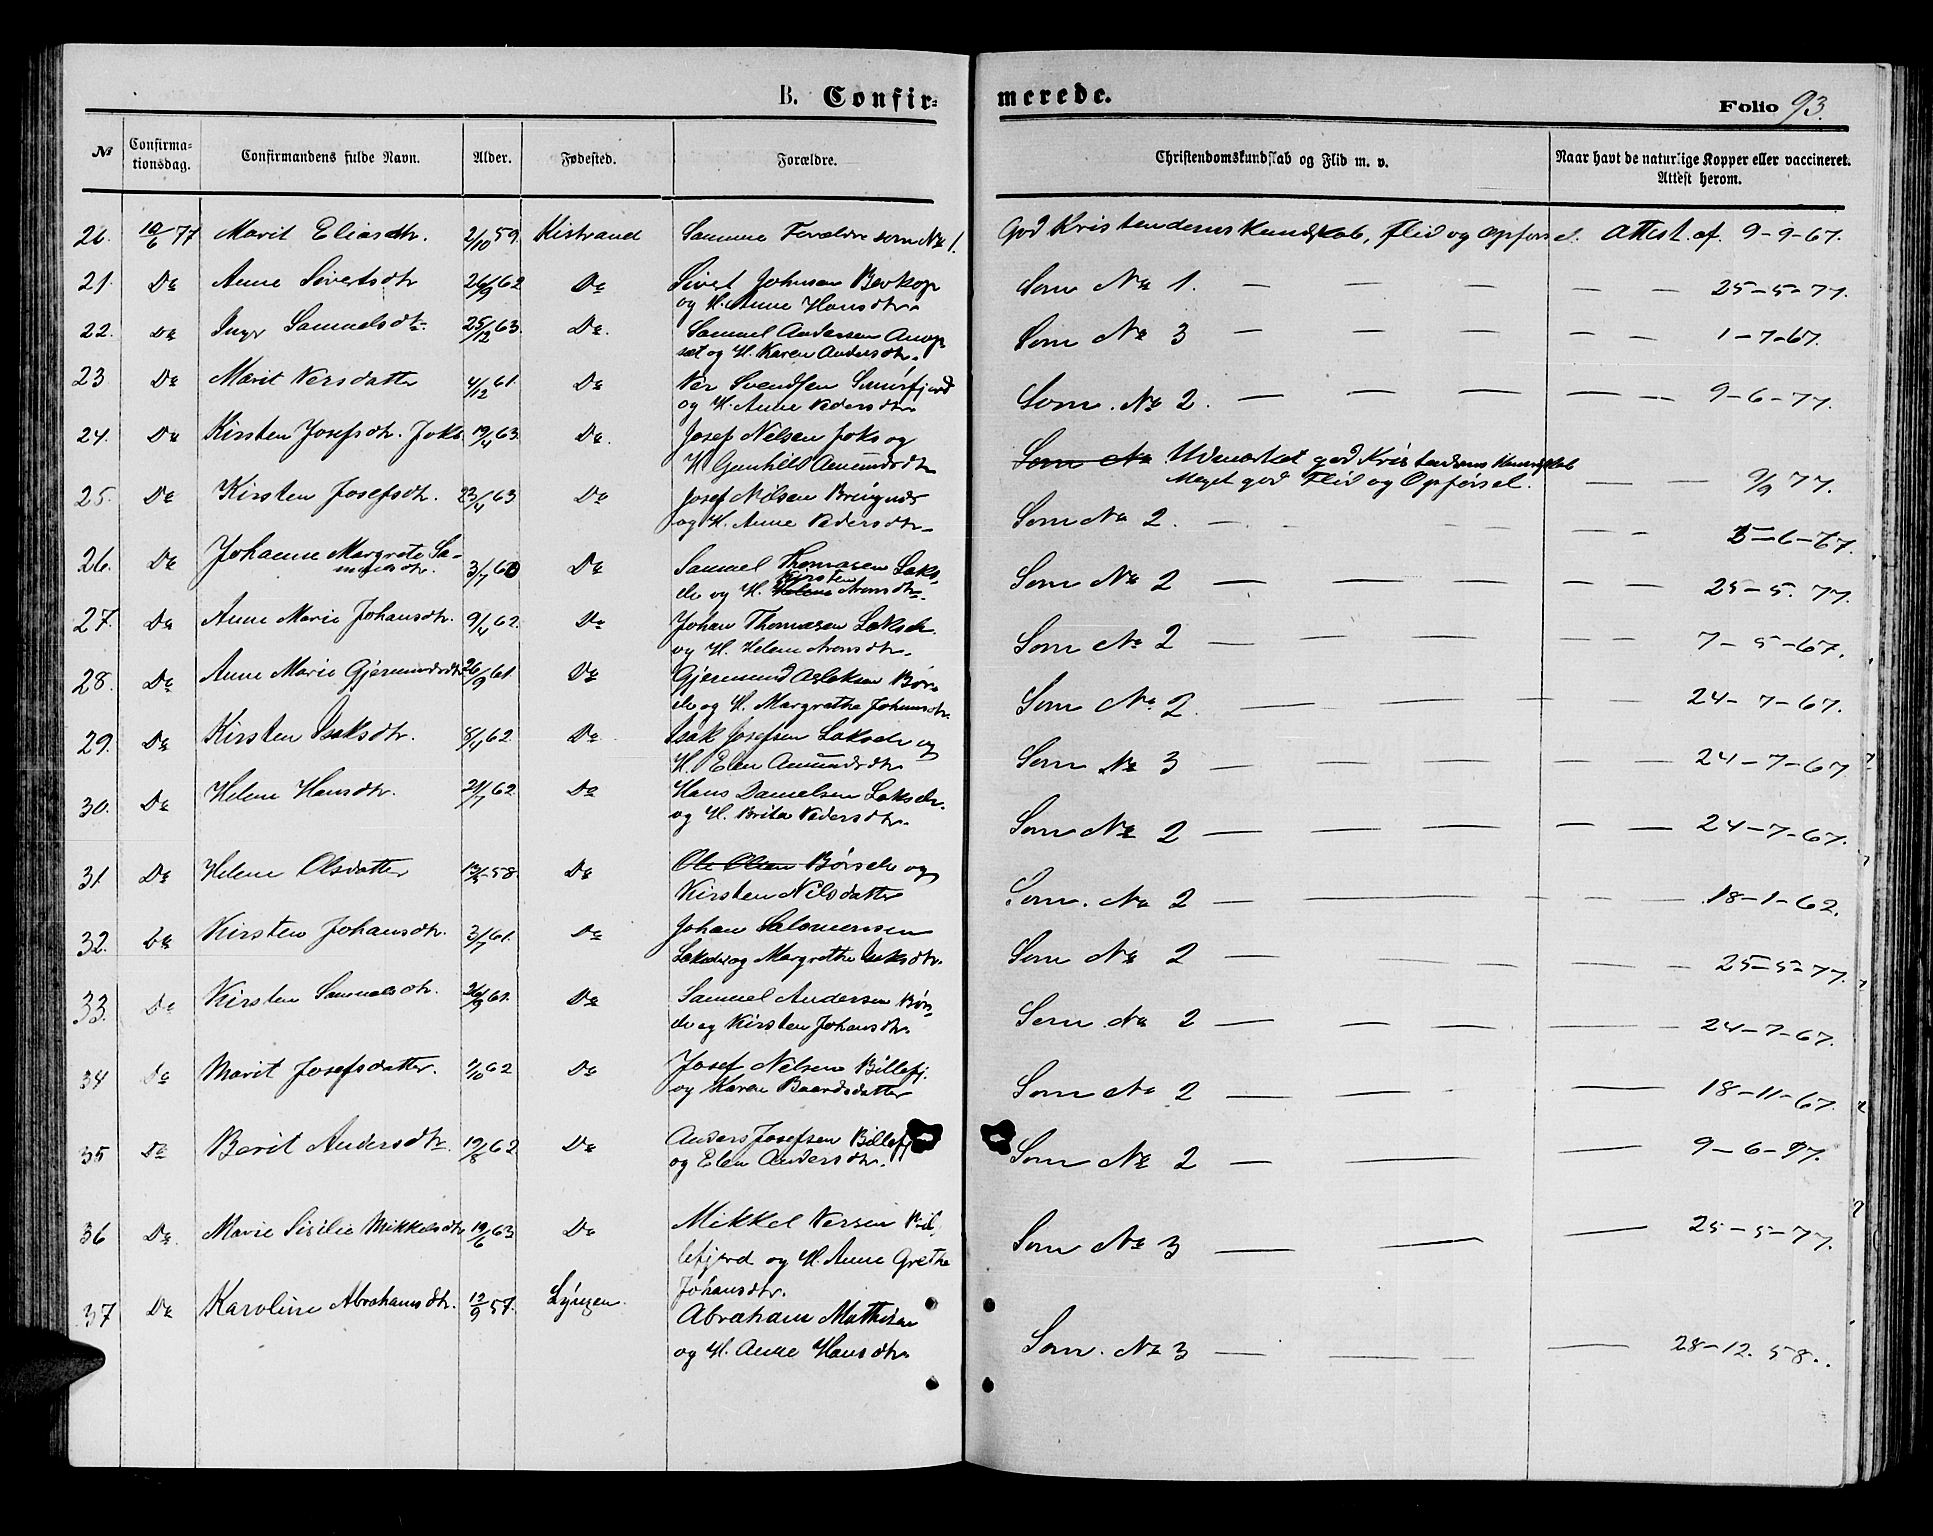 B. Confirmerede.
Folio 93.
№ Confirmationsdag. Confirmandens fulde Navn. Alder. Fødested. Forældre. Christendomskundskab og Flid m. v. Naar havt de naturlige Kopper eller vaccineret. Attest herom.
20. 10/6 77 Marit Eliasdtr. 2/10 59. Kistrand Samme Forældre som No 1. God Kristendoms Kundskab, Flid og Opførsel. Attest af 9-9-67.
21. Do Anne Sivertsdtr 26/9 62 Do Sivert Johnsen Som No 1. — — — — — 25-5-77.
og H. Anne Hansdtr.
22. Do Inger Samuelsdtr 25/12 63. Do. Samuel Andersen Som No 3 — — — — — 1-7-67.
og H. Karen Andersdtr.
23 Do Marit Persdatter 4/12 61. Do Per Svendsen Smörfjord Som No 2. — — — — — 9-6-77.
og H. Anne Pedersdtr
24. Do Kirsten Josefsdtr. Joks 19/4 63. Do. Josef Nilsen Joks og Som No Udmærket god Kristendoms Kundskab
H Gunhild Amundsdtr Meget god Flid og Opførsel. — — 9/9 77.
25. Do Kirsten Josefsdtr. 23/4 63 Do Josef Nilsen Som No 2. — — — — — 3-6-67.
og H. Anne Pedersdtr
26. Do Johanne Margrete Sa- 3/7 60 Do Samuel Thomasen Laks- Som No 2 — — — — — 25-5-77.
muelsdtr. Kirsten
elv og H. Helene Aronsdtr.
27. Do Anne Marie Johansdtr. 9/4 62. Do Johan Thomasen Lakselv. Som No 2 — — — — — 7-5-67.
og H. Helene Aronsdtr.
28. Do Anne Marie Gjermundsdtr 26/9 61. Do Gjermund Aslaksen Børs- Som No 2. — — — — — 24-7-67.
elv og H. Margrethe Johansdtr.
29. Do Kirsten Isaksdtr. 8/4 62. Do Isak Josefsen Lakselv og Som No 3 — — — — — 24-7-67
H. Elen Amundsdtr
30. Do Helene Hansdtr. 21/7 62. Do Hans Danielsen Lakselv. Som No 2 — — — — — 24-7-67.
og H. Brita Pedersdtr.
31. Do Helene Olsdatter 58. Do Ole Olsen Børselv og Som. No 2 — — — — 18-1-62.
Kirsten Nilsdatter
32. Do Kirsten Johansdtr. 3/7 61. Do Johan Salomonsen Som No 2 — — — — — 25-5-77.
Lakselv og Margrethe Isaksdtr.
33. Do Kirsten Samuelsdtr. 26/9 61. Do Samuel Andersen Børs- Som No 2 — — — — 24-7-67.
elv og Kirsten Johansdtr.
34 Do Marit Josefsdatter. 1/10 62 Do Josef Nilsen Billefj. Som No 2 — — — — 18-11-67.
og Karen Baardsdatter
35 Do Berit Andersdtr. 19/8 62 Do Anders Josefsen Billefj Som No 2 — — — 9-6-77.
og Elen Andersdtr.
36 Do. Marie Sisilie Mikkelsdtr 19/6 63 Do Mikkel Persen Bil- Som No 3 — — — 25-5-77.
lefjord og H. Anne Grethe
Johansdtr.
37 Do Karoline Abrahamsdtr. 12/9 57. Lyngen. Abraham Mathisen Som. No 3 — — — 28-12. 58.
og H. Anne Hansdtr